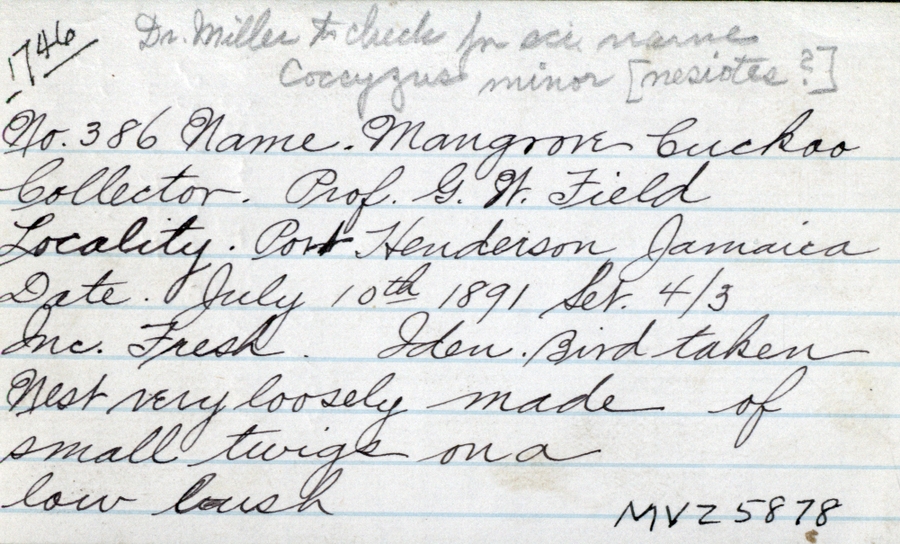 1746
Dr. Miller to check for sci name
Coccyzus minor [nesiotes?]
No. 386 Name. Mangrove Cuckoo
Collector. Prof. G. W. Field
Locality. Port Henderson Jamaica
Date. July 10th 1891 Set. 4/3
Inc. Fresh. Iden. Bird taken
Nest very loosely made of
small twigs on a
low bush
MVZ 5878